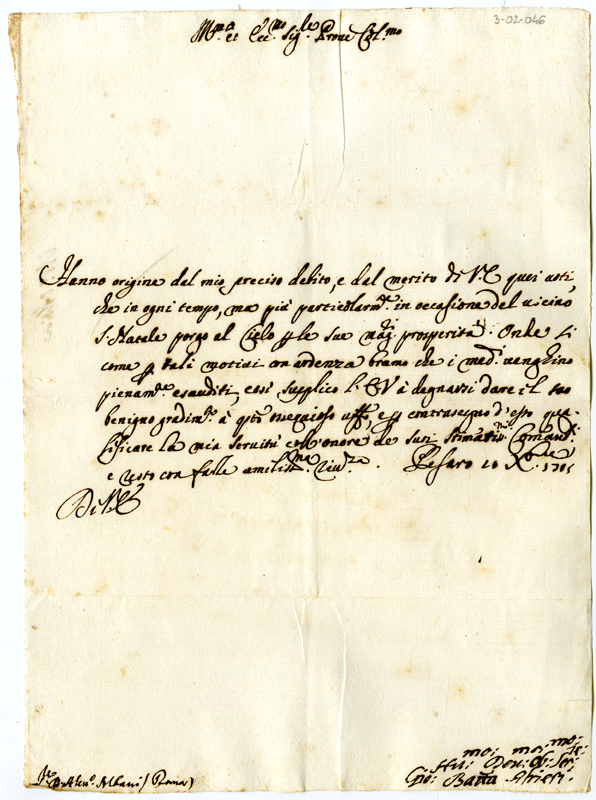 3-02-046
Ill.mo et Ecc.mo Sig.re Prone Col.mo
Hanno origine dal mio preciso debito, e dal merito di V.E. quei voti,
che in ogni tempo, ma più particolarm.te in occasione del vicino
S. Natale porgo al Cielo p le sue mag.ri prosperità. Onde si
come p tali motivi con ardenza bramo che i med.mi venghino
pienam.te esauditi, così supplico l'E.V. à degnarsi dare il suo
benigno gradim.to à q.to ossequioso uff.o, e p contrasegno d'esso qua-
lificare la mia servitù coll'onore de suoi stimatis.mi Comand.i
e resto con farle umiliss.ma riv.za. Pesaro 10 Xbre 1715
Di V.E.
D. Aless.o Albani (Roma)
mo: mo: mo:
Hu: Deu: Ob: Ser:re
Gio: Batta Almerici